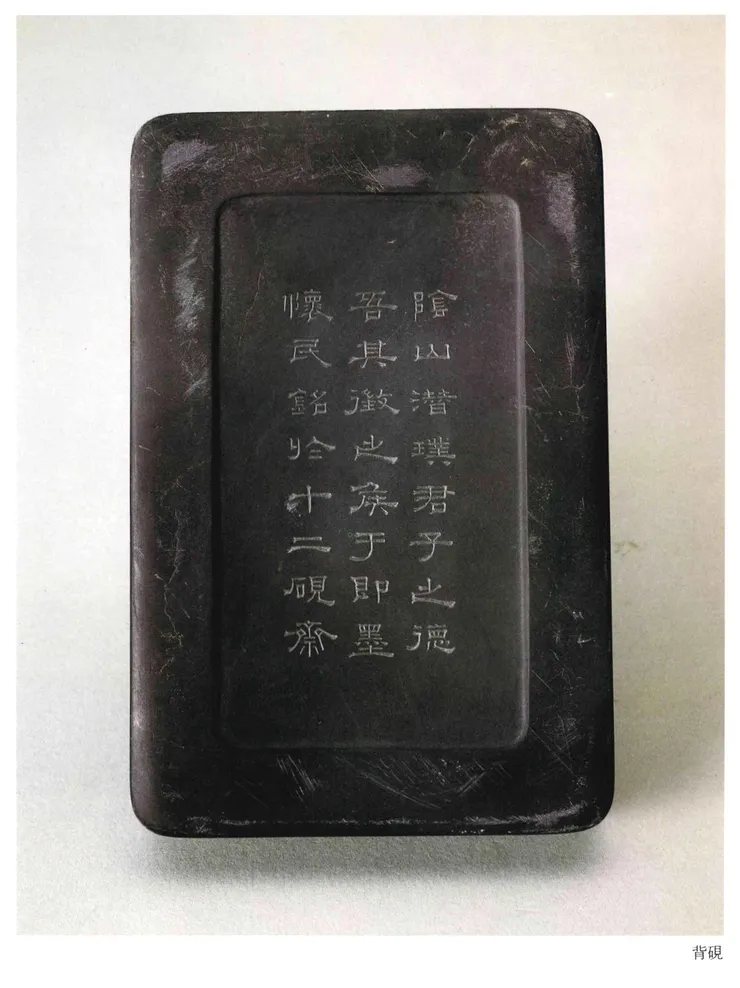 陰山潛璞君子之德
吾其徵之矦于即墨
懷民銘於十二硯齋
背硯